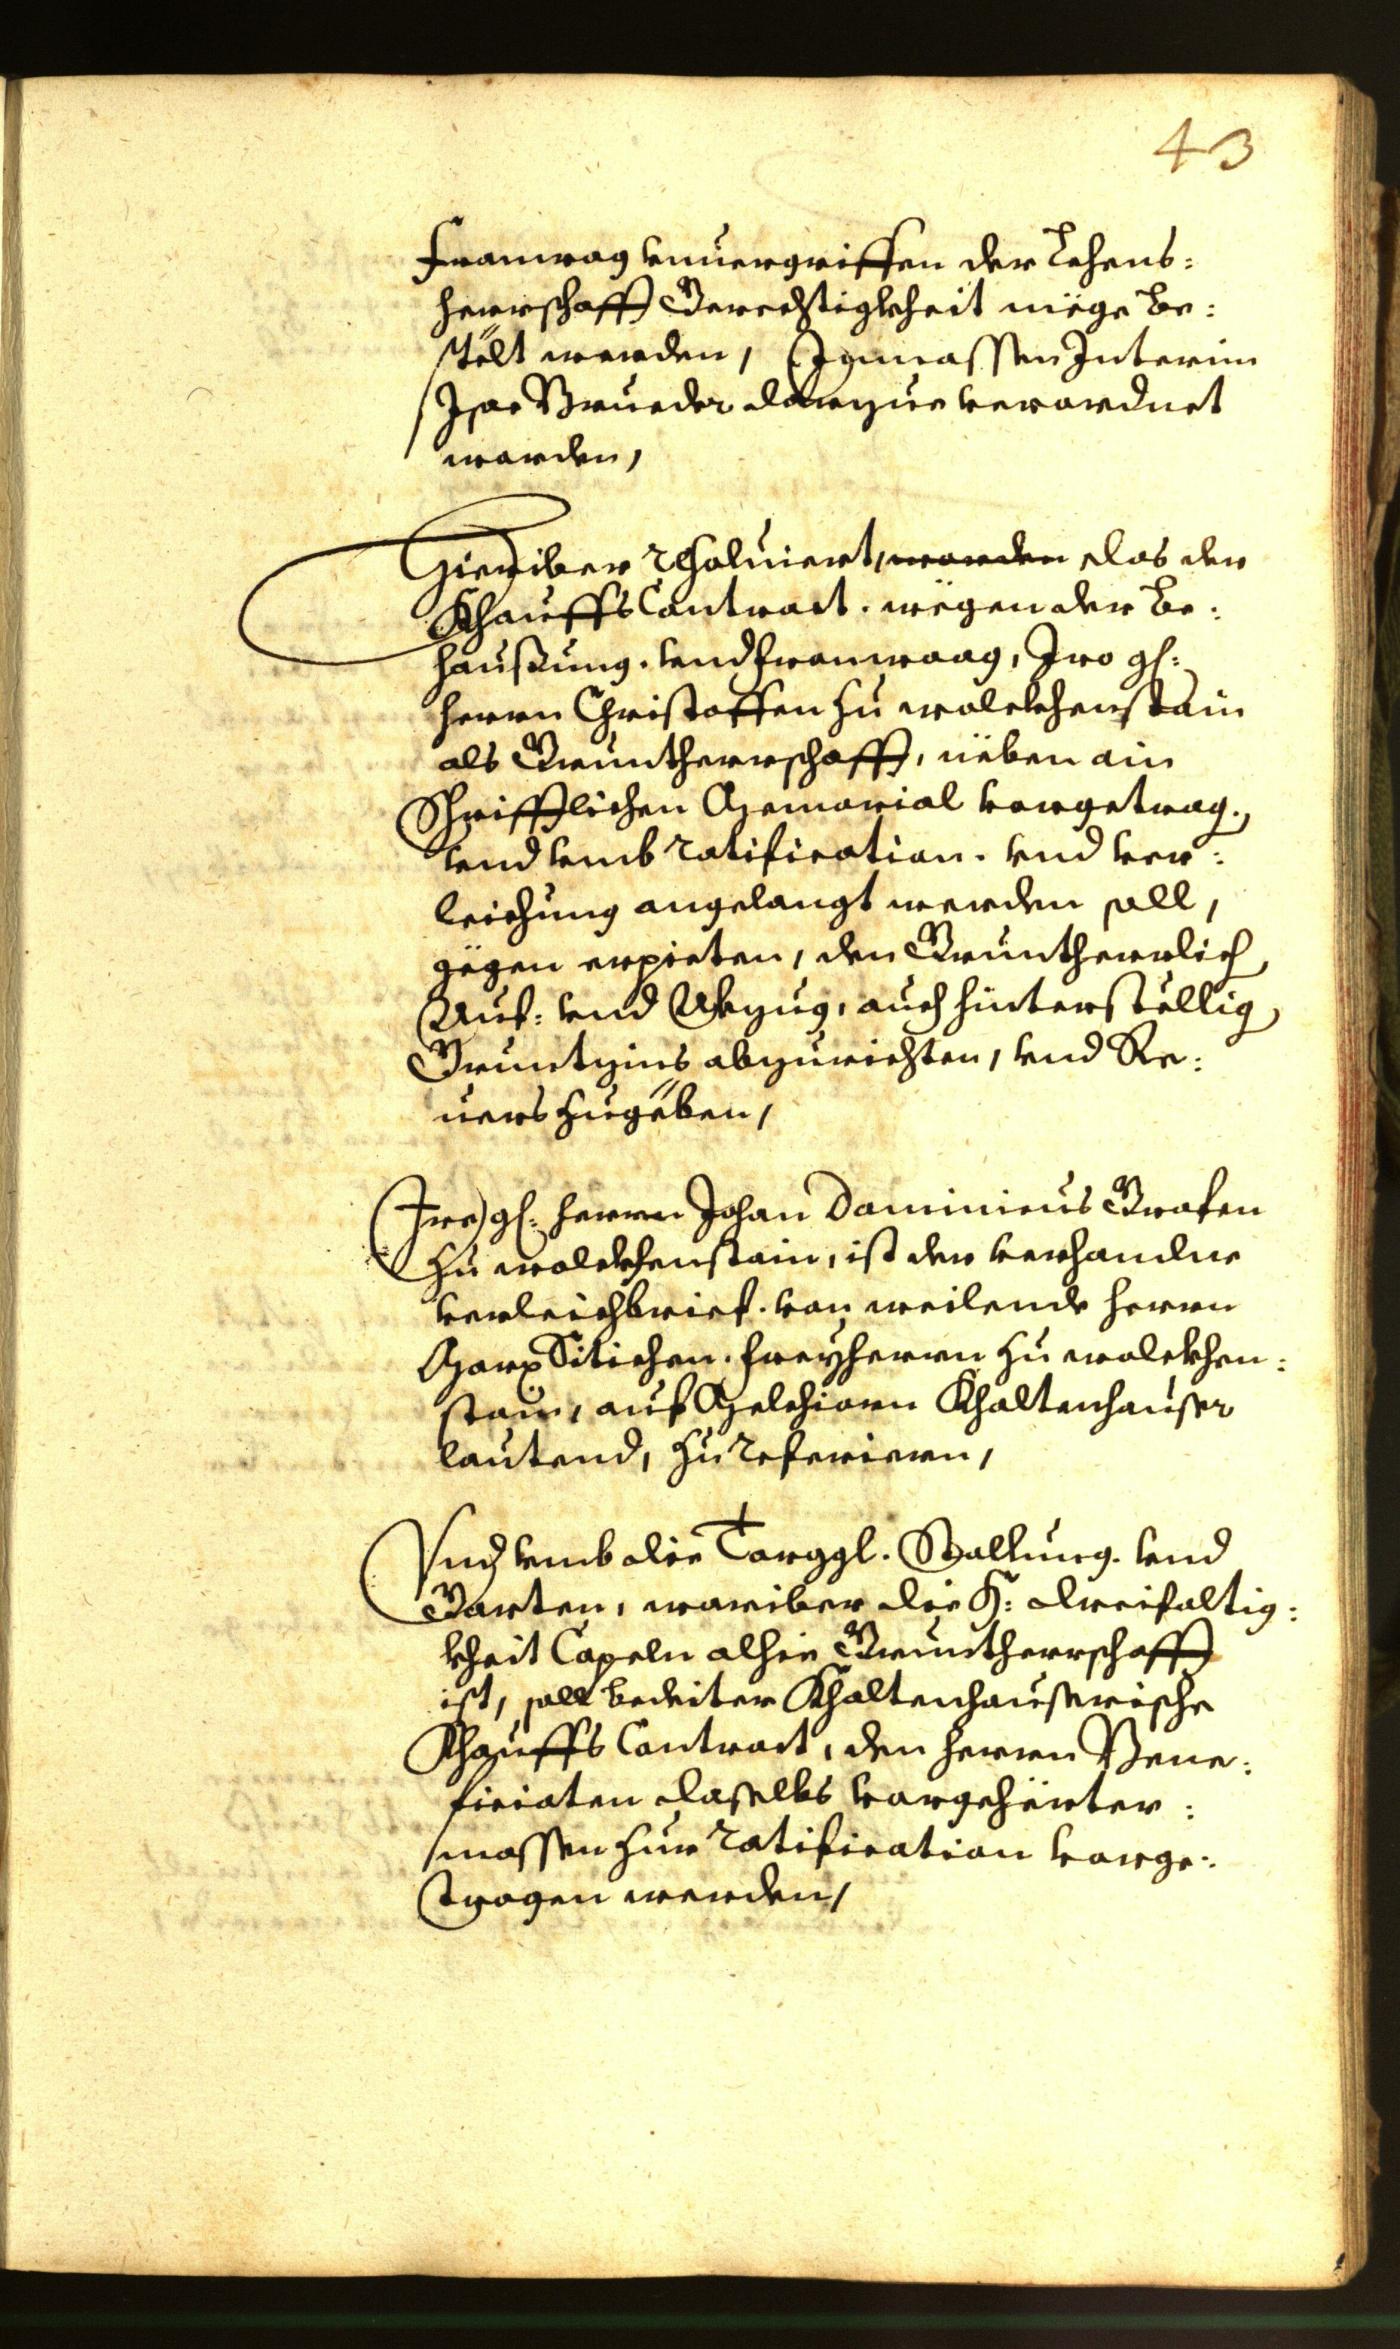 43
Franwag vnuergriffen der Lehens:
herrschafft Gerechtigkheit mëge be:
stëlt werden, Inmassen Interim
Ihr Brueder darzue verordnet
worden,
Hieriber resoluiert, worden das der
Khauffs Contract. wëgen der be:
haußung. vnd franwaag, Iro gl:
herrn Christoffen zu wolckhenstain
als Gruntherrschafft, nëben ain
Schrifftlichen Memorial vorgetrag.
vnd vmb ratification. vnd ver:
leichung angelangt werden soll,
gëgen erpieten, den Gruntherrlich
Auf: vnd Abzug, auch hinterstellig
Gruntzins abzurichten, vnd Re:
uers zugëben,
Ire gl: herrn Johan Dominicus Grafen
zu wolckhenstain, ist der verhandne
verleichbrief. von weilende herrn
Marx Sitichen. freyherrn zu wolckhen:
stain, auf Melchiorn Khaltenhauser
lautend, zu referiern,
Vnd vmb die Torggl. Stallung. vnd
Garten, wariber die H: dreifaltig:
kheit Capeln alhie Gruntherrschafft
ist, soll bediter Khaltenhauserische
Khauffs Contract, den herrn Bene:
ficiaten daselbs vorgehörter:
massen zur ratification vorge:
tragen werden,